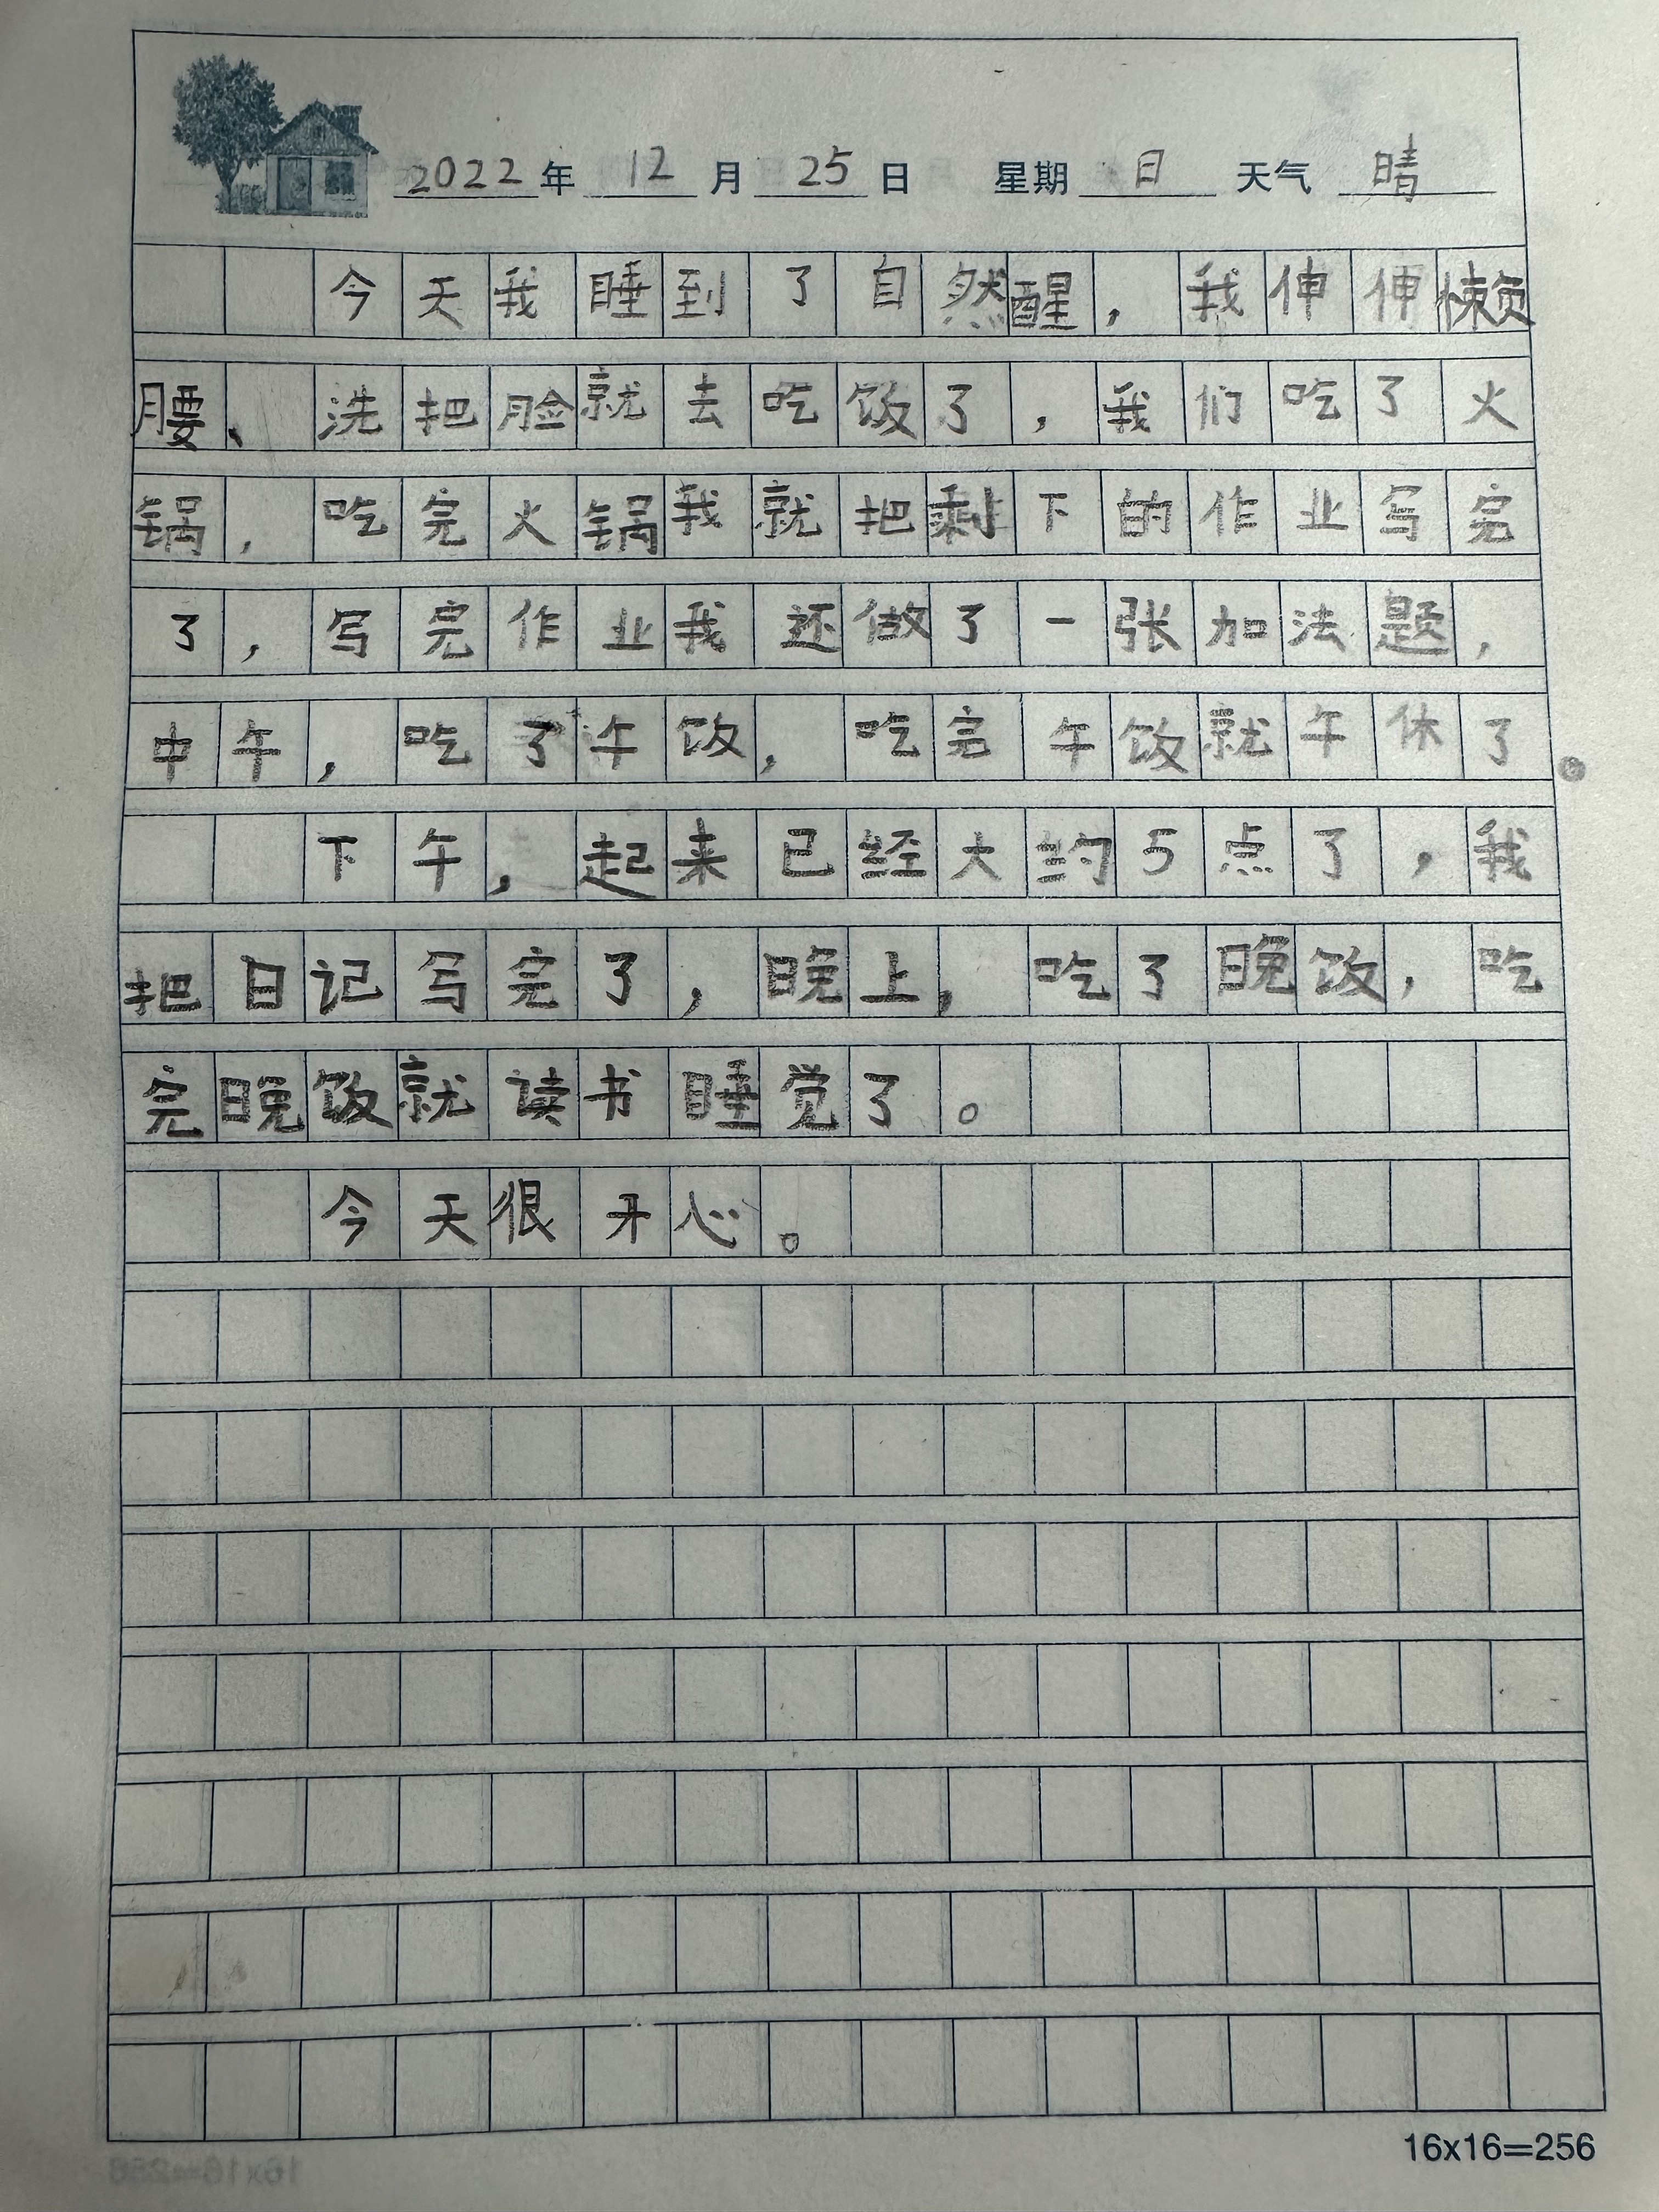 2022年12月25日 星期日 天气晴
今天我睡到了自然醒，我伸伸懒
腰、洗把脸就去吃饭了，我们吃了火
锅，吃完火锅我就把剩下的作业写完
了，写完作业我还做了一张加法题，
中午，吃了午饭，吃完午饭就午休了。
下午，起来已经大约5点了，我
把日记写完了，晚上，吃了晚饭，吃
完晚饭就读书睡觉了。
今天很开心。
16x16=256